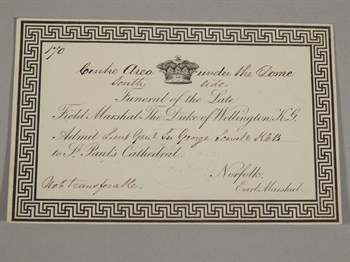 170
Centre Area under the Dome
South side
Funeral of the Late
Field Marshal The Duke of Wellington, K.G.
Admit Lieut Genl Sir George Scovell KCB
to St. Paul's Cathedral.
Norfolk,
Earl Marshal.
Not transferable.